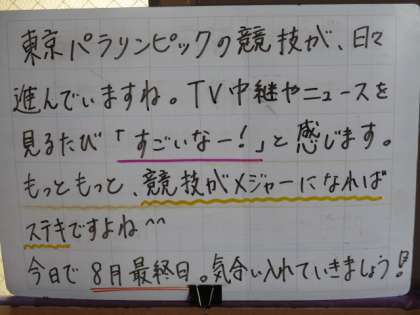 東京パラリンピックの競技が、日々
進んでいますね。TV中継やニュースを
見るたび「すごいなー!」と感じます。
もっともっと、競技がメジャーになれば
ステキですよね^^
今日で8月最終日。気合い入れていきましょう!!